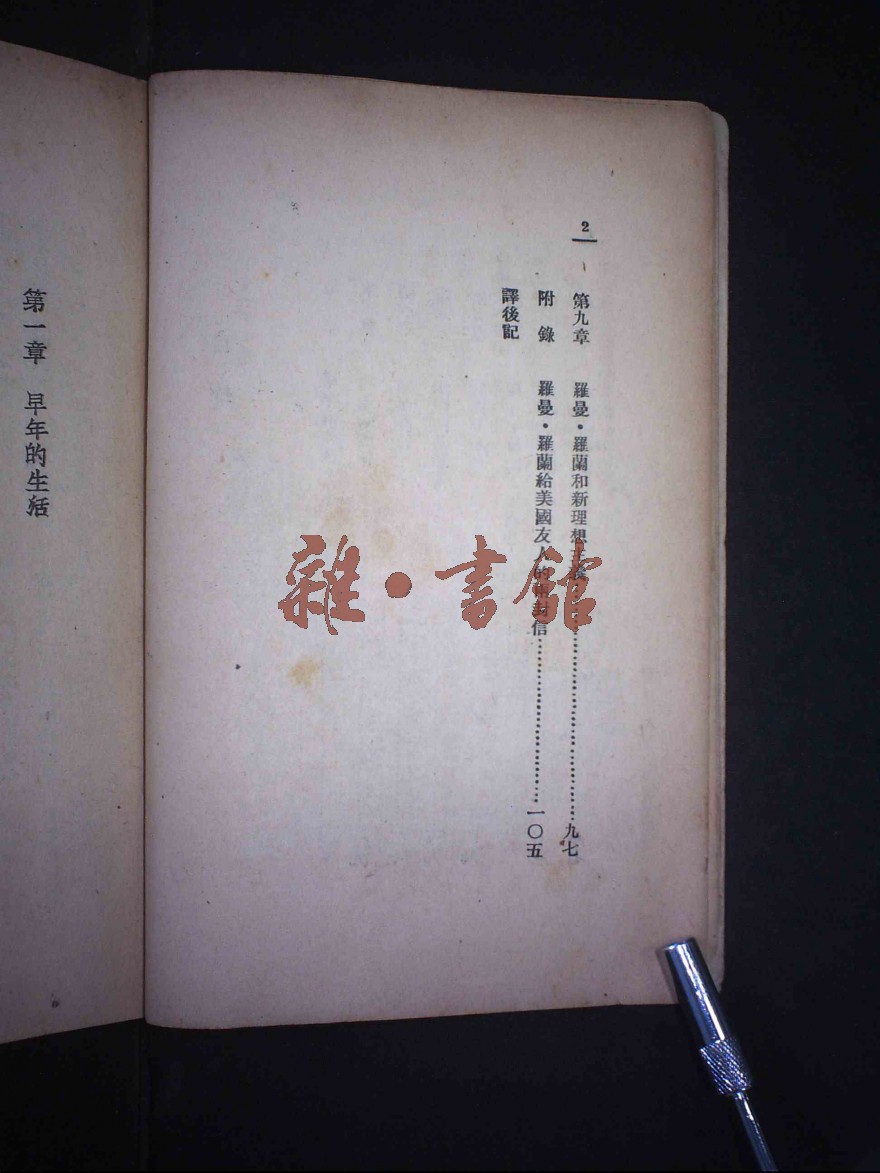 2
第九章 羅曼·羅蘭和新理想主義……………………九七
附 錄 羅曼·羅蘭給美國友人的兩封信……………………一〇五
譯後記
第一章 早年的生活
雜·書館